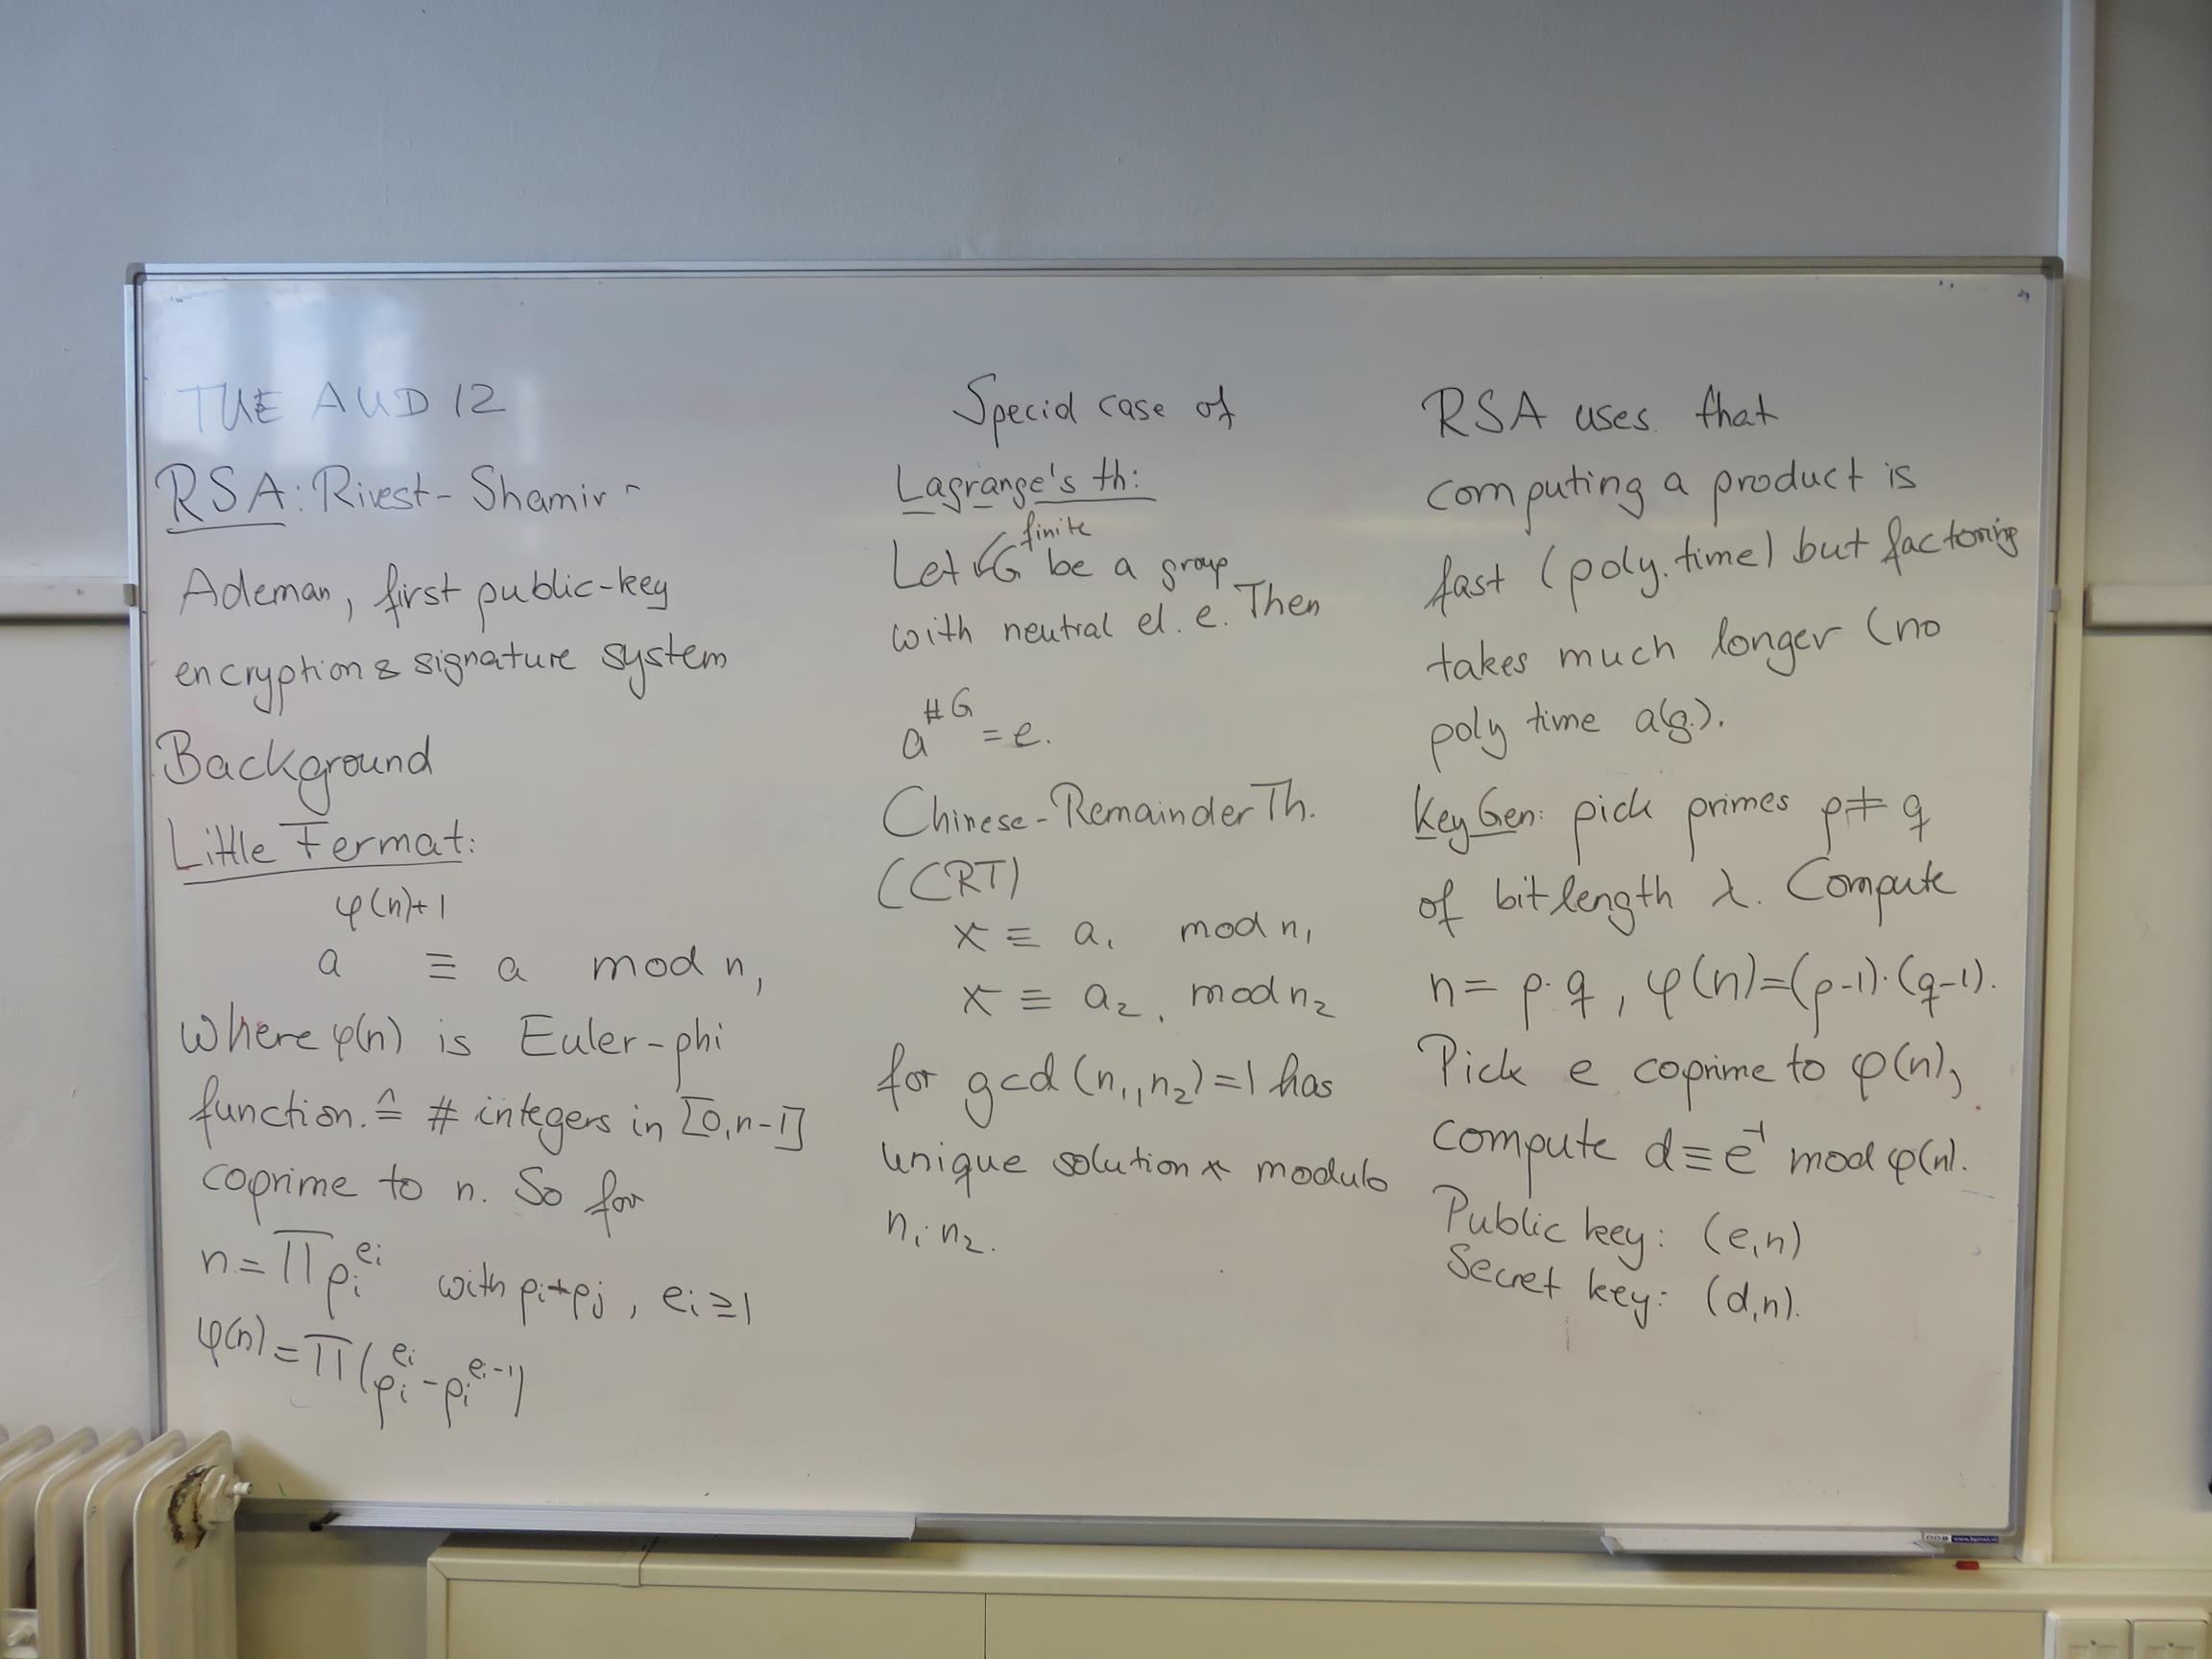 TUE AUD 12
RSA: Rivest-Shamir-
Ademan, first public-key
encryption & signature system
Background
Little Fermat:
φ(n)+1
a ≡ a mod n,
where φ(n) is Euler-phi
function. ≙ # integers in [0,n-1]
coprime to n. So for
n = ∏ pᵢ^eᵢ with pᵢ≠pⱼ, eᵢ≥1
φ(n) = ∏(pᵢ^eᵢ - pᵢ^(eᵢ-1))
Special case of
Lagrange's th:
finite
Let G be a group
with neutral el. e. Then
a^#G = e.
Chinese-Remainder Th.
(CRT)
x ≡ a₁ mod n₁
x ≡ a₂ mod n₂
for gcd(n₁,n₂)=1 has
unique solution x modulo
n₁·n₂.
RSA uses that
computing a product is
fast (poly.time) but factoring
takes much longer (no
poly time alg.).
KeyGen: pick primes p≠q
of bitlength λ. Compute
n = p·q, φ(n)=(p-1)·(q-1).
Pick e coprime to φ(n),
compute d≡e⁻¹ mod φ(n).
Public key: (e,n)
Secret key: (d,n).